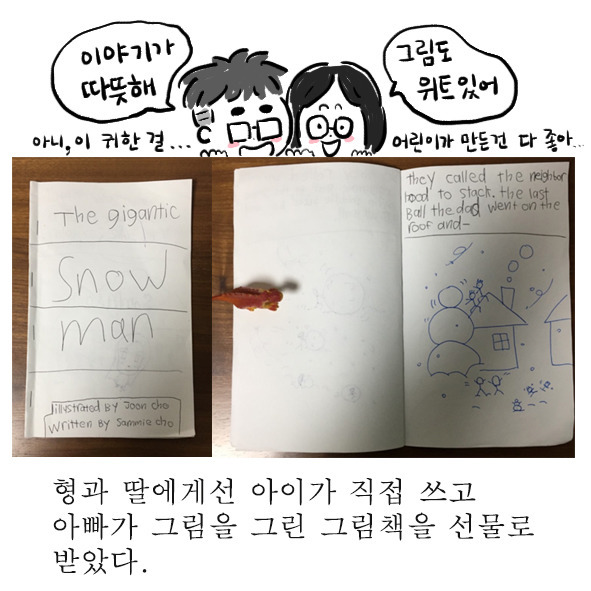 이야기가
따뜻해
그림도
위트있어
아니, 이 귀한 걸...
어린이가 만든건 다 좋아...
The gigantic
Snow
man
illustrated By Joon cho
Written By Sammie cho
they called the neighbor
hood to stack. the last
Ball the dad went on the
roof and-
형과 딸에게선 아이가 직접 쓰고
아빠가 그림을 그린 그림책을 선물로
받았다.